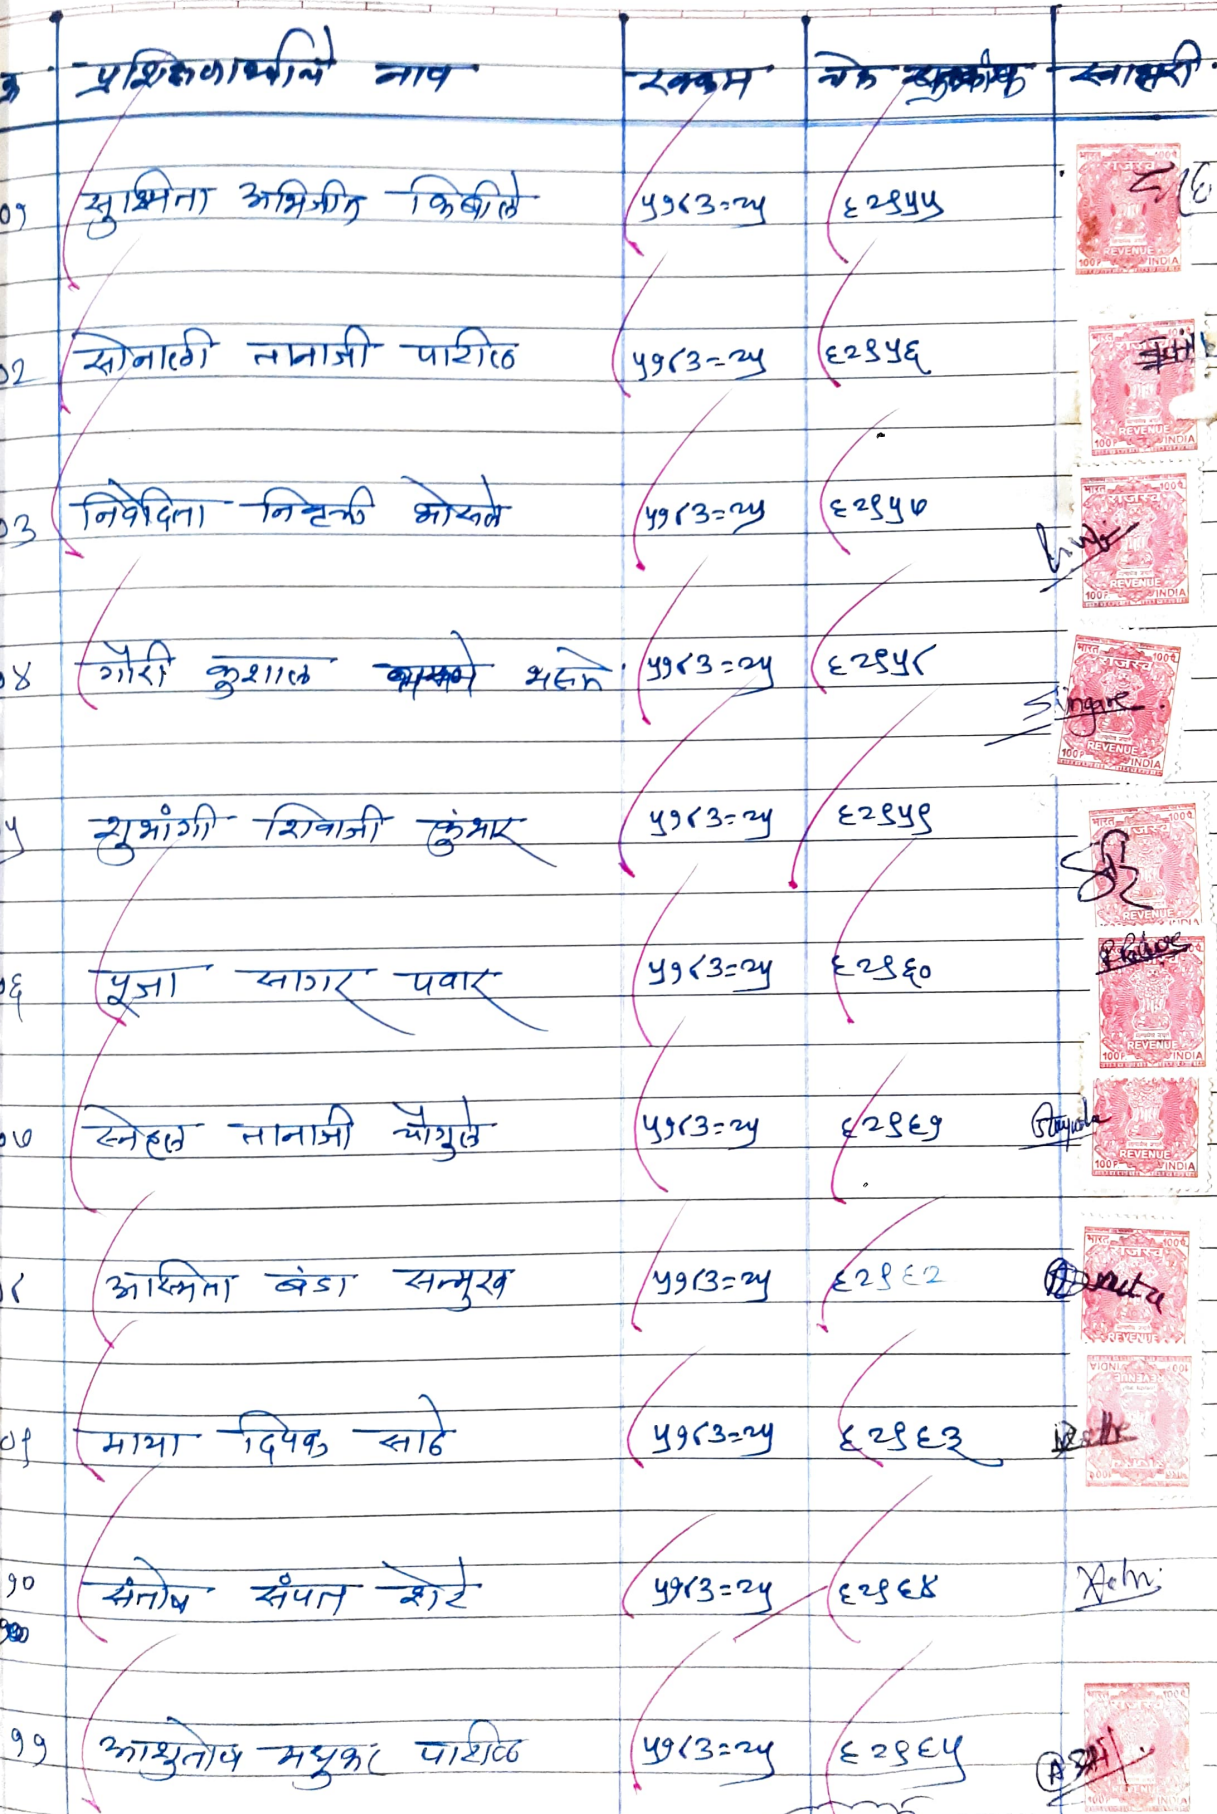 क्र प्रशिक्षणार्थीचे नाव रक्कम चेक क्रमांक स्वाक्षरी
०१ सुश्मिता अभिजीत किबीले ५१८३=२५ ६२९५५
०२ सोनाली तानाजी पाटील ५१८३=२५ ६२९५६
०३ निवेदिता भोसले ५१८३=२५ ६२९५७
०४ गौरी कुशाल ५१८३=२५ ६२९५८
Singare
५ शुभांगी शिवाजी कुंभार ५१८३=२५ ६२९५९
०६ पूजा सागर पवार ५१८३=२५ ६२९६०
०७ स्नेहल तानाजी चौगुले ५१८३=२५ ६२९६१
८ अस्मिता बंडा सन्मुख ५१८३=२५ ६२९६२
०९ माया दिपक साठे ५१८३=२५ ६२९६३
१० संतोष संपत शेटे ५१८३=२५ ६२९६४
११ आशुतोष मधुकर पाटील ५१८३=२५ ६२९६५
भारत 100प.
राजस्व
REVENUE
100P INDIA